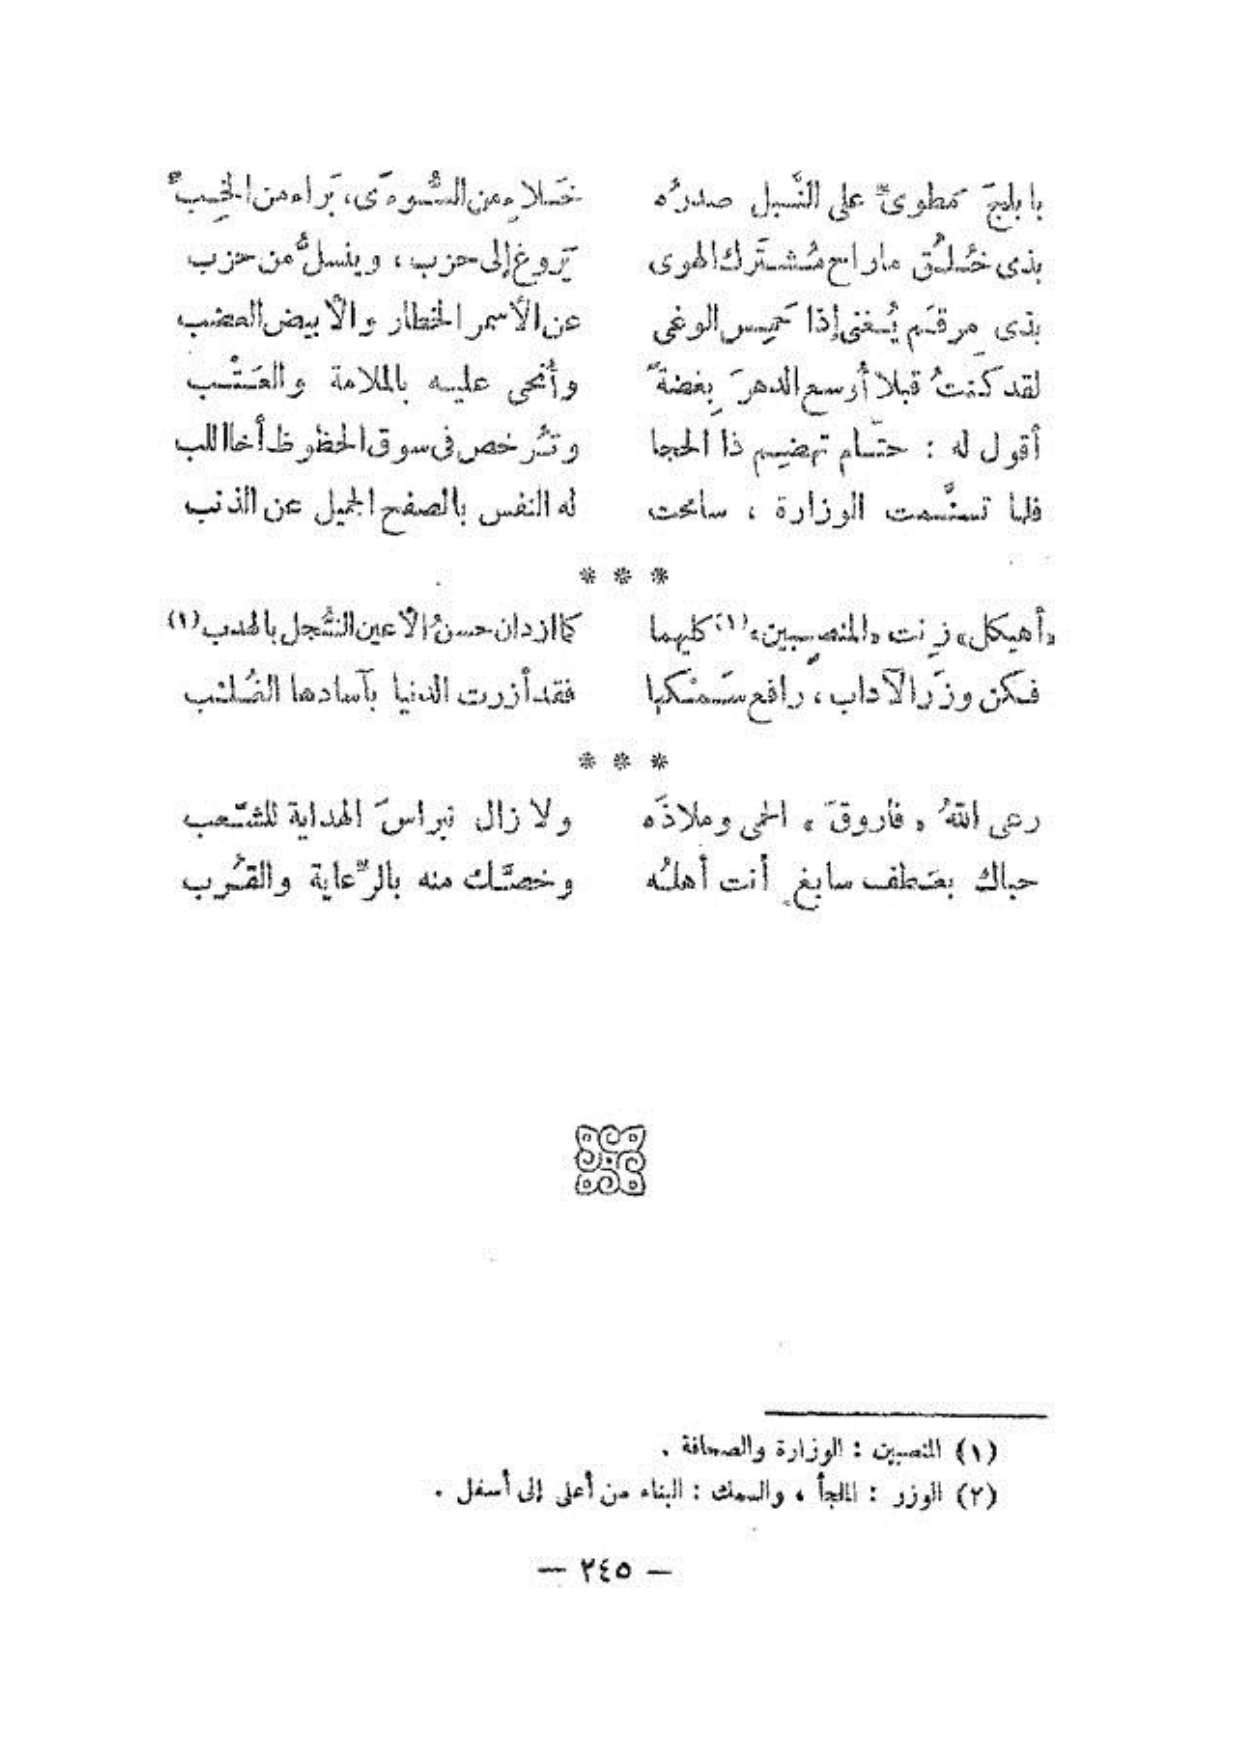 بابلجَ مَطوىٍّ على النُّبل صدرُه خَلاءٍ من السُّوءَى، بَراءٍ من الخِبِّ
بذى خُلُق ما راح مُشتَرك الهوى يَروغ إلى حزب، وينسلُّ من حزب
بذى مِرقَم يُغنى إذا حَمِيس الوغى عن الأسمر الخطار والأبيض العضب
لقد كنتُ قبلا أُوسع الدهرَ بِغضةً وأنحى عليه بالملامة والعَتْب
أقول له : حتَّام تهضِيم ذا الحجا وتُرخص فى سوق الحظوظ أخا اللب
فلما تسنَّمت الوزارة ، سامحت له النفس بالصفح الجميل عن الذنب
* * *
«أهيكل» زِنت «المنصِبين» (١) كليهما كما ازدان حسنُ الأعين النُّجل بالهدب (١)
فكن وزَر الآداب ، رافع سَمْكها فقد أزرت الدنيا بآسادها الغُلْب
* * *
رعى اللهُ «فاروقَ» الحمى وملاذَه ولا زال نبراسَ الهداية للشَّعب
حباك بعَطف سابغٍ أنت أهلُه وخصَّك منه بالرِّعاية والقُرب
(١) المنصبين : الوزارة والصحافة .
(٢) الوزر : الملجأ ، والسمك : البناء من أعلى إلى أسفل .
— ٢٤٥ —